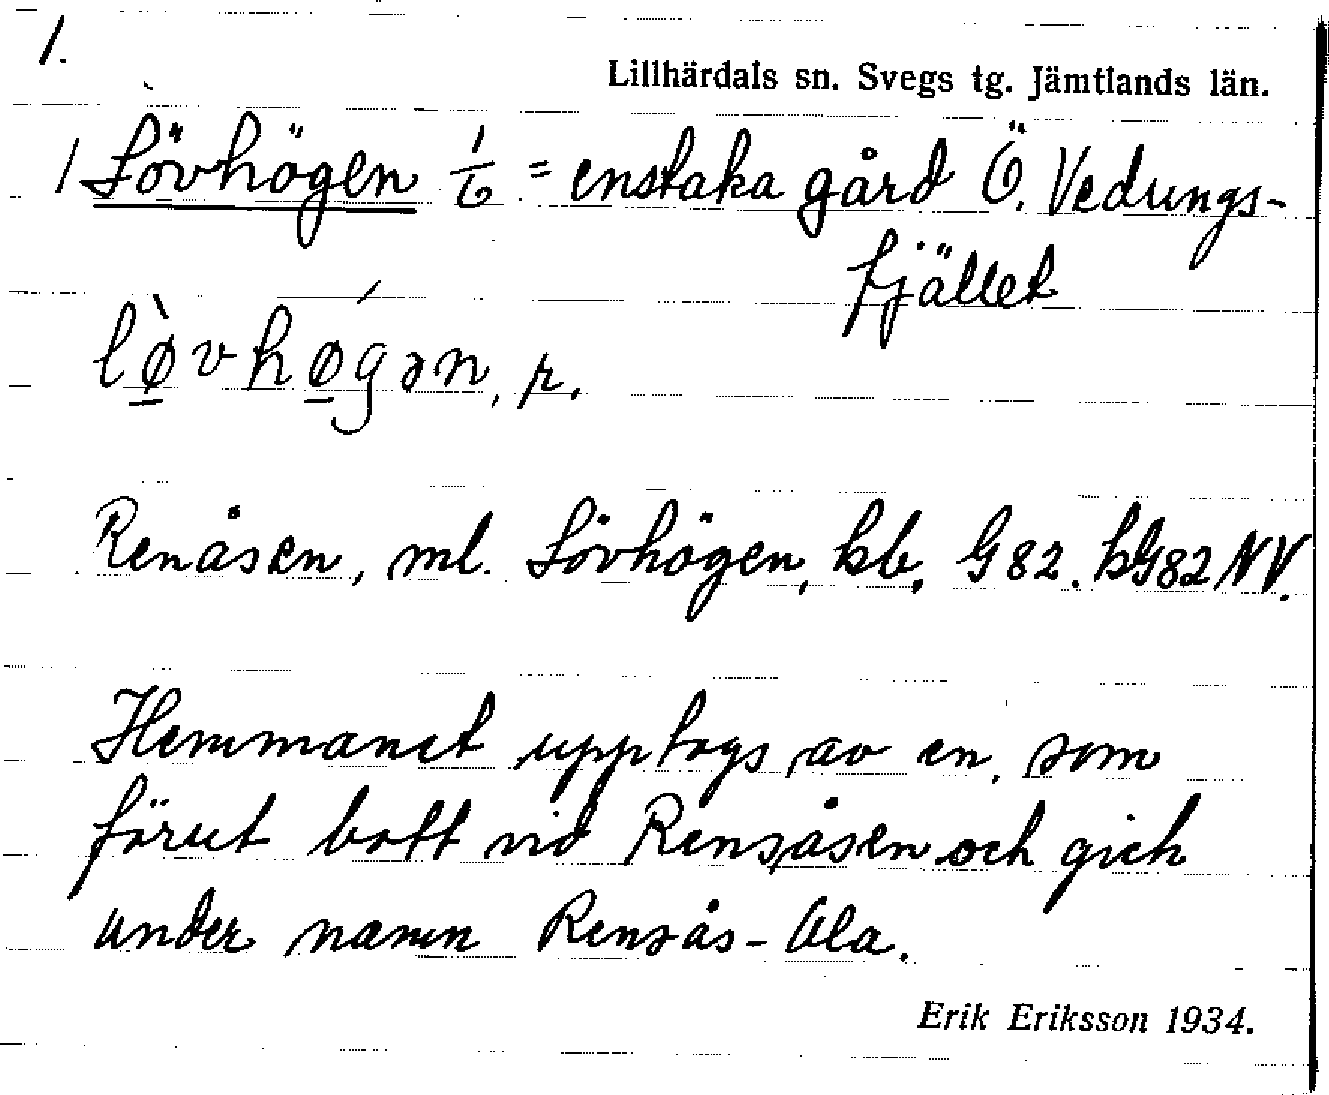 1.
Lillhärdals sn. Svegs tg. Jämtlands län.
1 Lövhögen 1/6 = enstaka gård Ö. Vedungs-
fjället
lø̠̀vhǿ̠gən, r.
Renåsen, ml. Lövhögen, kb. G82. kG82 NV.
Hemmanet upptogs av en, som
förut bott vid Rensåsen och gick
under namn Rensås-Ola.
Erik Eriksson 1934.